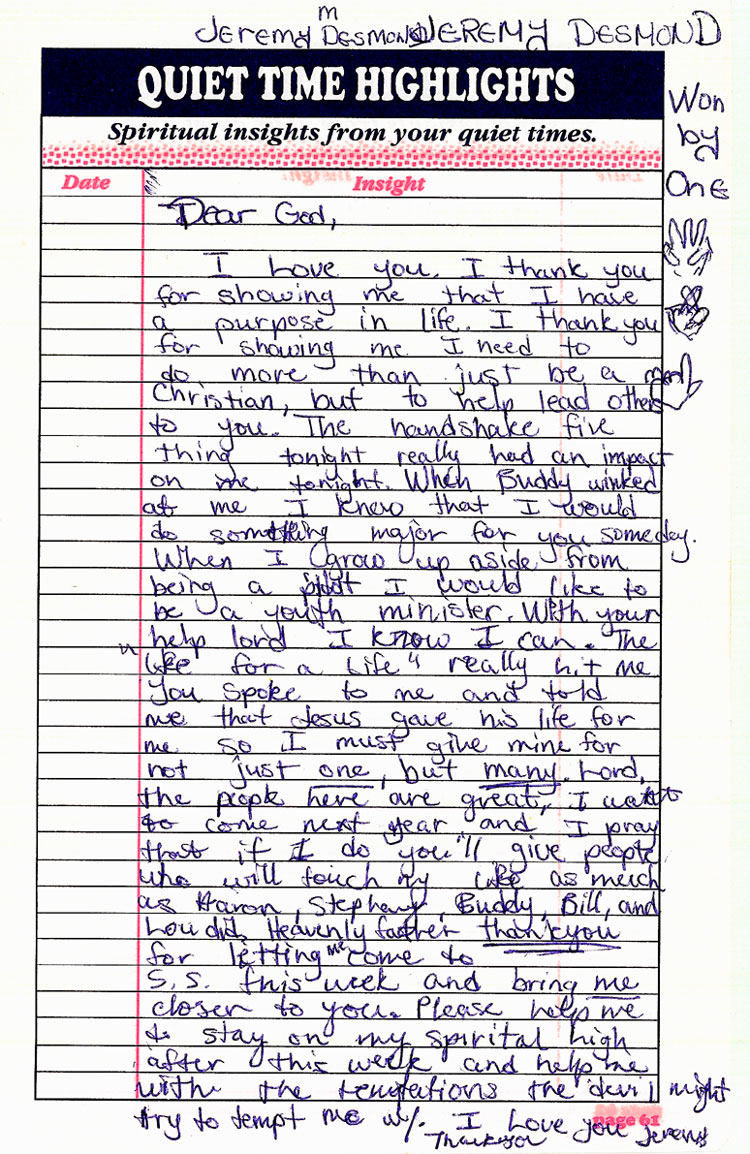 Jeremy m Desmond JEREMY DESMOND
QUIET TIME HIGHLIGHTS
Spiritual insights from your quiet times.
Won
by
One
Date Insight
Dear God,
I Love you. I thank you
for showing me that I have
a purpose in life. I thank you
for showing me I need to
do more than just be a
Christian, but to help lead others
to you. The handshake five
thing tonight really had an impact
on me tonight. When Buddy winked
at me I knew that I would
do something major for you someday.
When I grow up aside from
being a pilot I would like to
be a youth minister. With your
help lord I know I can. The
"life for a life" really hit me
You spoke to me and told
me that Jesus gave his life for
me so I must give mine for
not just one, but many. Lord,
the people here are great, I want
to come next year and I pray
that if I do you'll give people
who will touch my life as much
as Aaron, Stephany, Buddy, Bill, and
Lou did. Heavenly father thankyou
for letting me come to
S.S. this week and bring me
closer to you. Please help me
to stay on my spirital high
after this week and help me
with the temptations the devil might
try to tempt me w/. I Love you Jeremy
Thankyou
page 61